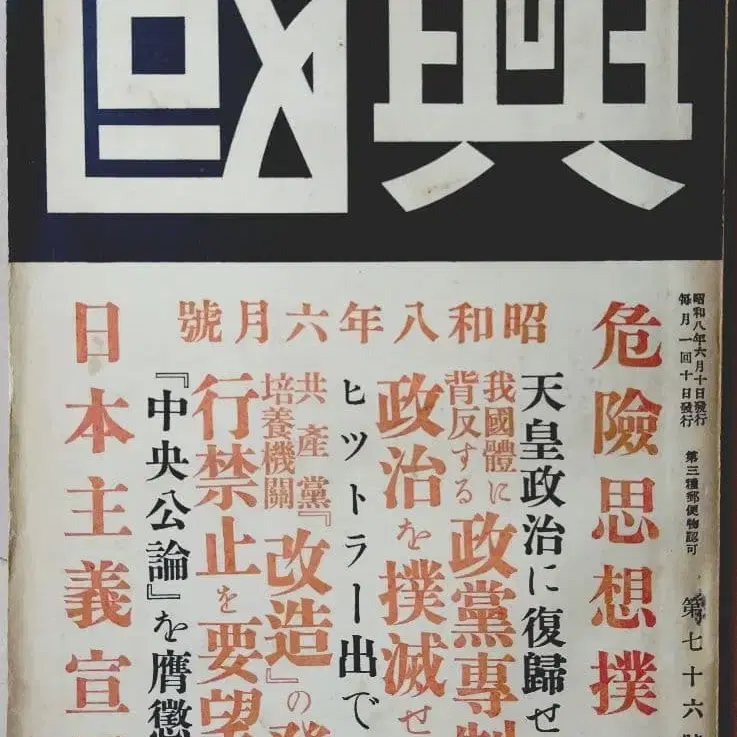 興國
昭和八年六月十日發行
每月一回十日發行
第三種郵便物認可
第七十六號
危險思想撲
昭和八年六月號
天皇政治に復歸せ
我國體に
背反する
政黨專制
政治を撲滅せ
ヒツトラー出で
共產黨
培養機關
『改造』の發
行禁止を要望
『中央公論』を膺懲
日本主義宣